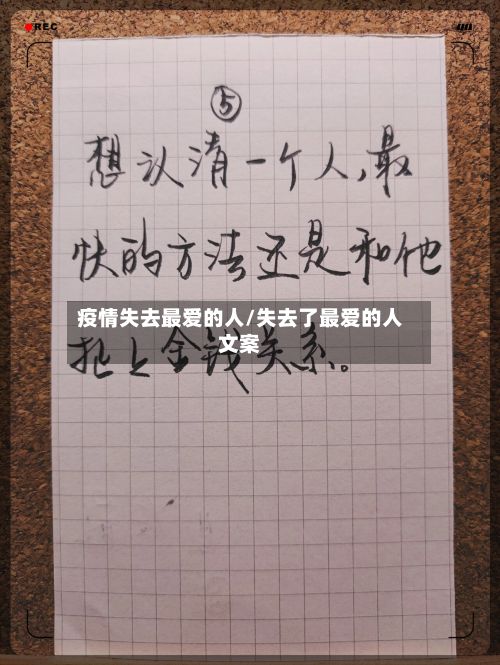 REC
⑤
想认清一个人,最
快的方法还是和他
疫情失去最爱的人/失去了最爱的人
文案
扯上金钱关系。